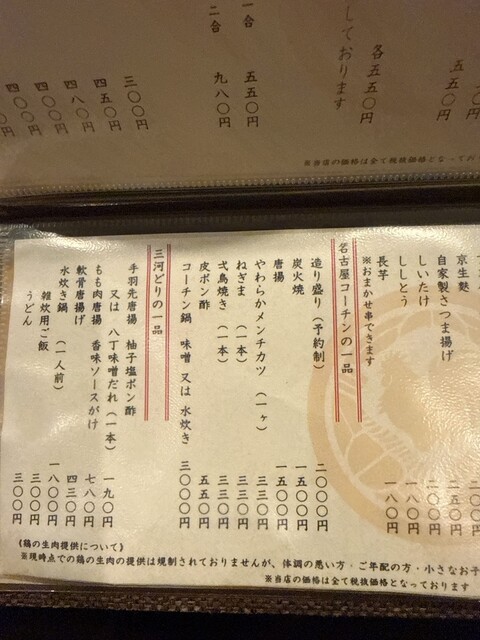 五五〇円
各五五〇円
しております
一合 五五〇円
二合 九八〇円
三〇〇円
四五〇円
四八〇円
四〇〇円
※当店の価格は全て税抜価格となって
京生麩
自家製さつま揚げ 二五〇円
しいたけ 二〇〇円
ししとう 一八〇円
長芋 一八〇円
※おまかせ串できます
名古屋コーチンの一品
造り盛り(予約制) 二〇〇〇円
炭火焼 一五〇〇円
唐揚 一五〇〇円
やわらかメンチカツ (一ヶ) 三三〇円
ねぎま (一本) 三三〇円
弍鳥焼き (一本) 三三〇円
皮ポン酢 五五〇円
コーチン鍋 味噌 又は 水炊き 三〇〇〇円
三河どりの一品
手羽先唐揚 柚子塩ポン酢
又は 八丁味噌だれ(一本) 一九〇円
もも肉唐揚 香味ソースがけ 七八〇円
軟骨唐揚げ 四三〇円
水炊き鍋 (一人前) 一八〇〇円
雑炊用ご飯 三〇〇円
うどん 三〇〇円
《鶏の生肉提供について》
※現時点での鶏の生肉の提供は規制されておりませんが、体調の悪い方・ご年配の方・小さなお子
※当店の価格は全て税抜価格となっております